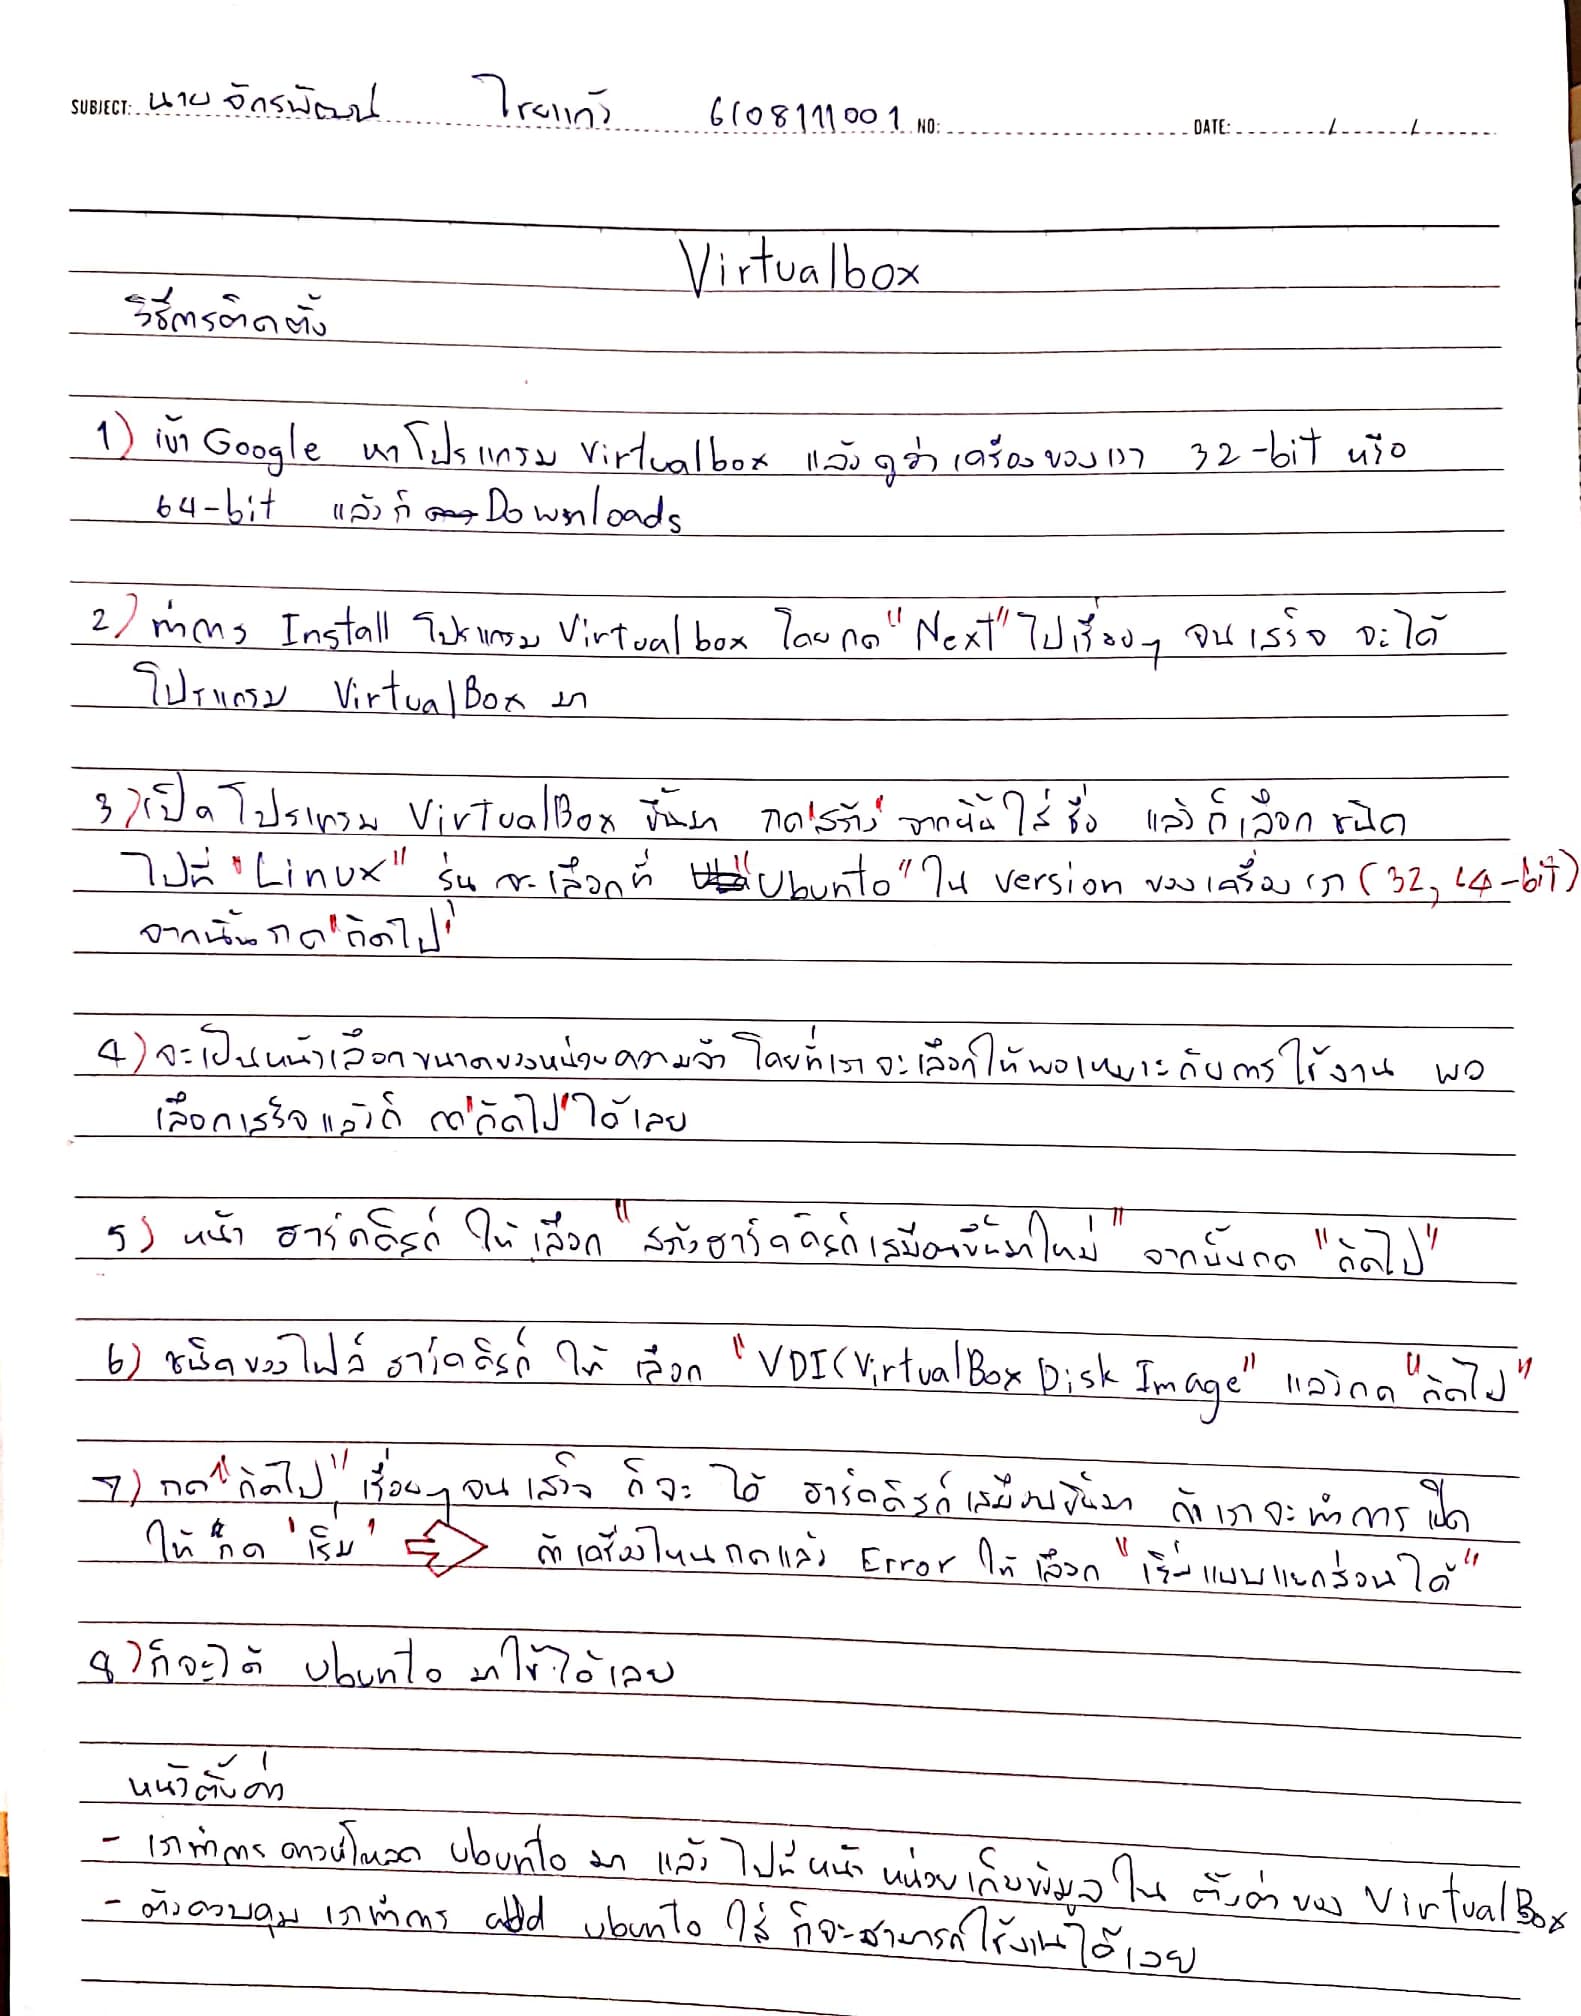 SUBJECT: นาย จักรพัฒน์ ไรยแก้ว 6108111001 NO: DATE: / /
Virtualbox
วิธีการติดตั้ง
1) เข้า Google หาโปรแกรม Virtualbox แล้วดูว่าเครื่องของเรา 32-bit หรือ
64-bit แล้วก็ Downloads
2) ทำการ Install โปรแกรม Virtualbox โดยกด "Next" ไปเรื่อยๆ จนเสร็จ จะได้
โปรแกรม VirtualBox มา
3) เปิดโปรแกรม VirtualBox ขึ้นมา กด"สร้าง" จากนั้นใส่ชื่อ แล้วก็เลือกชนิด
ไปที่ "Linux" รุ่น จะเลือกที่ "Ubunto" ใน version ของเครื่องเรา (32, 64-bit)
จากนั้นกด"ถัดไป"
4) จะเป็นหน้าเลือกขนาดของหน่วยความจำ โดยที่เราจะเลือกให้พอเหมาะกับการใช้งาน พอ
เลือกเสร็จแล้วก็ กด"ถัดไป"ได้เลย
5) หน้า ฮาร์ดดิสก์ ให้เลือก "สร้างฮาร์ดดิสก์เสมือนขึ้นมาใหม่" จากนั้นกด "ถัดไป"
6) ชนิดของไฟล์ ฮาร์ดดิสก์ ให้ เลือก "VDI(VirtualBox Disk Image" แล้วกด "ถัดไป"
7) กด"ถัดไป" เรื่อยๆ จนเสร็จ ก็จะ ได้ ฮาร์ดดิสก์เสมือนขึ้นมา ถ้าเราจะทำการเปิด
ให้กด 'เริ่ม' ถ้าเครื่องไหนกดแล้ว Error ให้เลือก "เริ่มแบบแยกส่วนได้"
8) ก็จะได้ Ubunto มาใช้ได้เลย
หน้าตั้งค่า
- เราทำการดาวน์โหลด Ubunto มา แล้วไปที่หน้า หน่วยเก็บข้อมูลใน ตั้งค่าของ VirtualBox
- ตัวควบคุม เราทำการ add ubunto ใส่ ก็จะสามารถใช้งานได้เลย